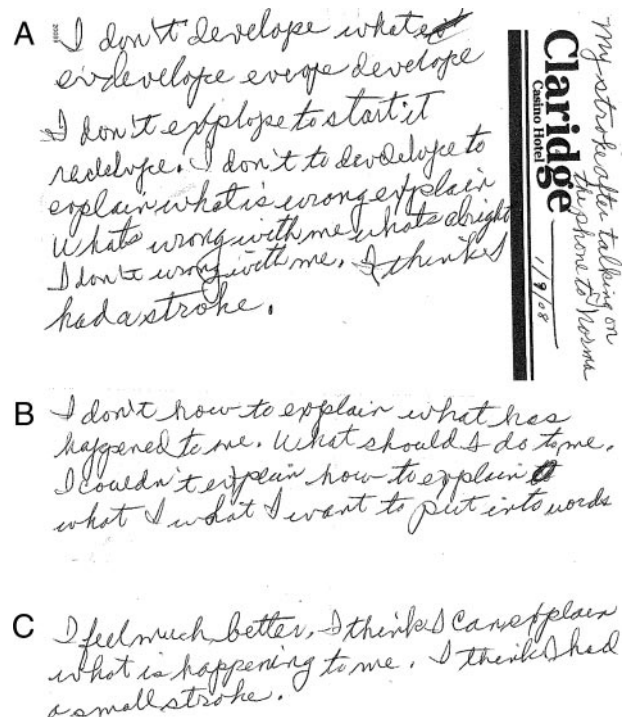 A
I don't develope whats
evdevelope everope develope
I don't explope to start it
redelope. I don't to devdelope to
explain what is wrong explain
whats wrong with me whats alright
I don't wrong with me. I think I
had a stroke.
Claridge
Casino Hotel
My stroke after talking on
the phone to Norma
1/9/08
B
I don't how to explain what has
happened to me. What should I do to me.
I couldn't explain how to explain
what I what I want to put into words
C
I feel much better, I think I can explain
what is happening to me. I think I had
a small stroke.